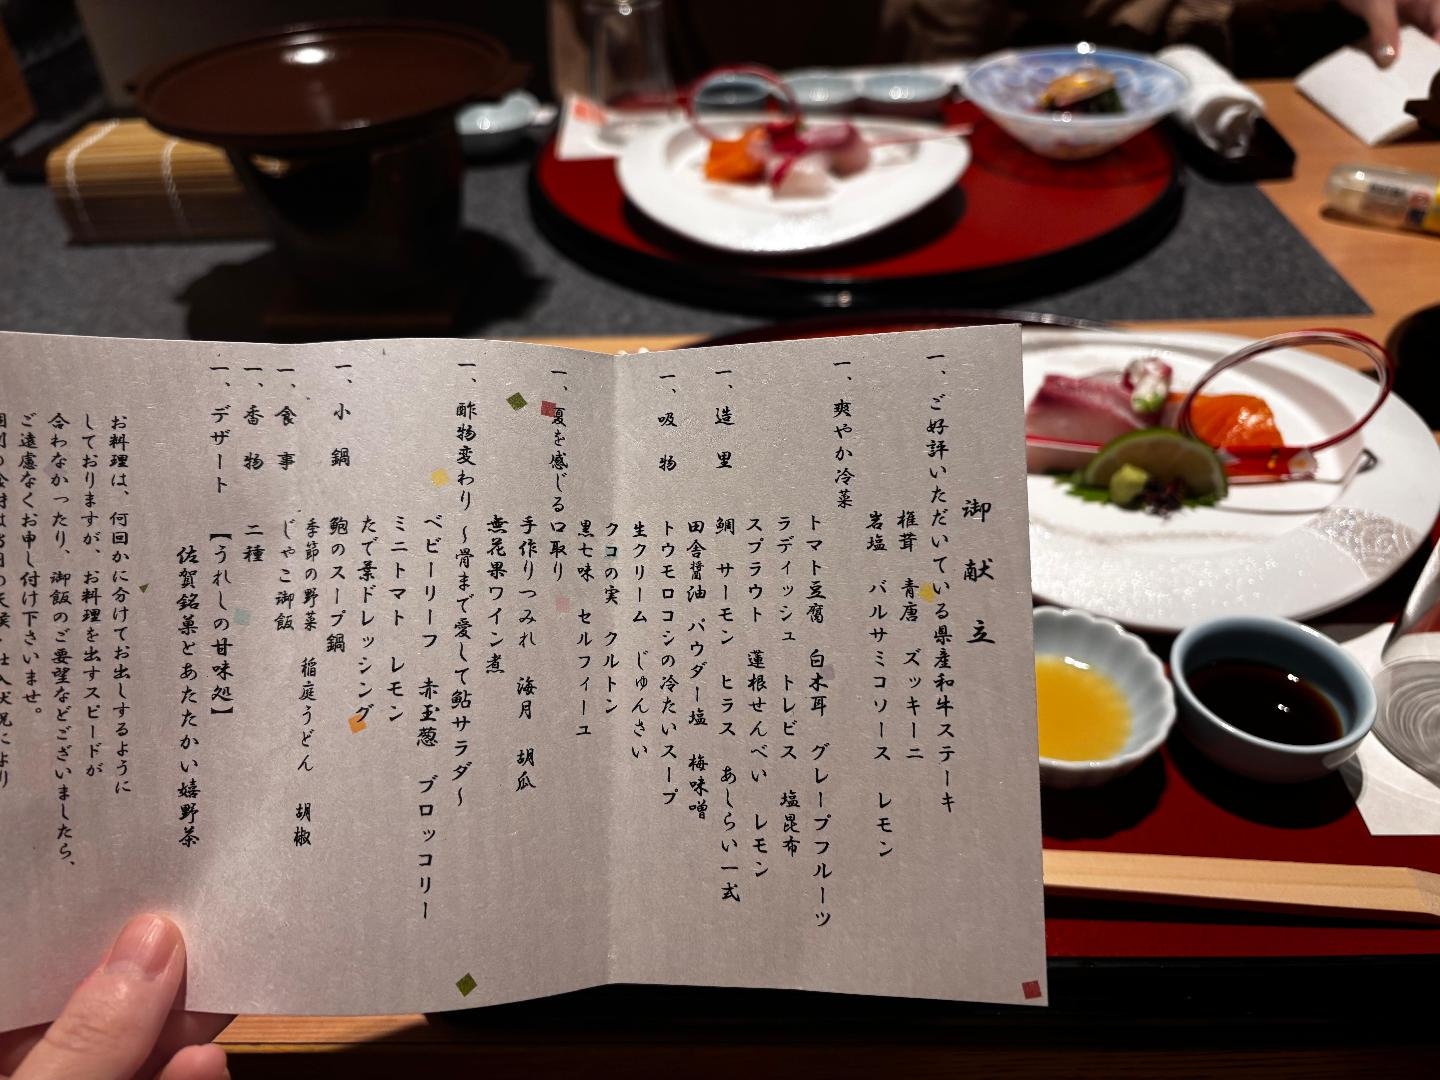 御献立
一、ご好評いただいている県産和牛ステーキ
椎茸 青唐 ズッキーニ
岩塩 バルサミコソース レモン
一、爽やか冷菜
トマト豆腐 白木耳 グレープフルーツ
ラディッシュ トレビス 塩昆布
スプラウト 蓮根せんべい レモン
一、造里
鯛 サーモン ヒラス あしらい一式
田舎醤油 パウダー塩 梅味噌
一、吸物
トウモロコシの冷たいスープ
生クリーム じゅんさい
クコの実 クルトン
黒七味 セルフィーユ
一、夏を感じる口取り
手作りつみれ 海月 胡瓜
無花果ワイン煮
一、酢物変わり ～骨まで愛して鮎サラダ～
ベビーリーフ 赤玉葱 ブロッコリー
ミニトマト レモン
たで葉ドレッシング
一、小鍋
鮑のスープ鍋
季節の野菜 稲庭うどん 胡椒
一、食事
じゃこ御飯
一、香物 二種
一、デザート 【うれしの甘味処】
佐賀銘菓とあたたかい嬉野茶
お料理は、何回かに分けてお出しするように
しておりますが、お料理を出すスピードが
合わなかったり、御飯のご要望などございましたら、
ご遠慮なくお申し付け下さいませ。